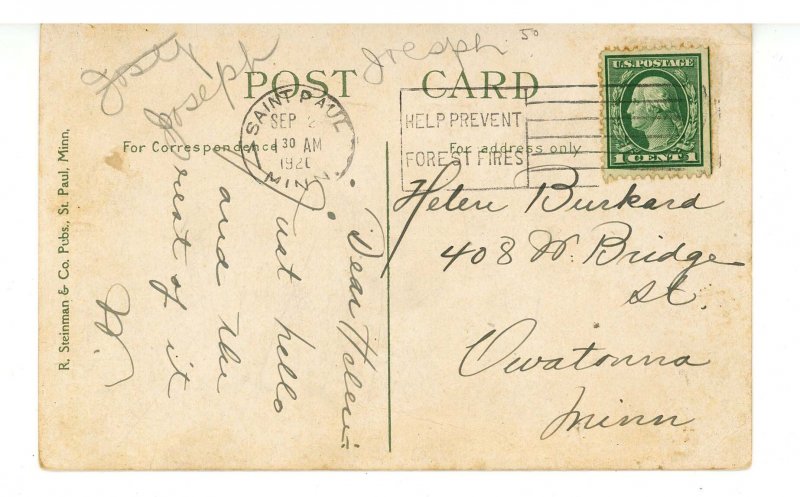 Josey
Joseph
Joseph
50
POST CARD
SAINT PAUL
SEP 2
30 AM
192
MINN
HELP PREVENT
FOREST FIRES
U.S. POSTAGE
1 CENT 1
For Correspondence
For address only
R. Steinman & Co. Pubs., St. Paul, Minn.
Dear Helen:
Just hello
and the
rest of it
W.
Helen Burkard
408 W. Bridge
St.
Owatonna
Minn